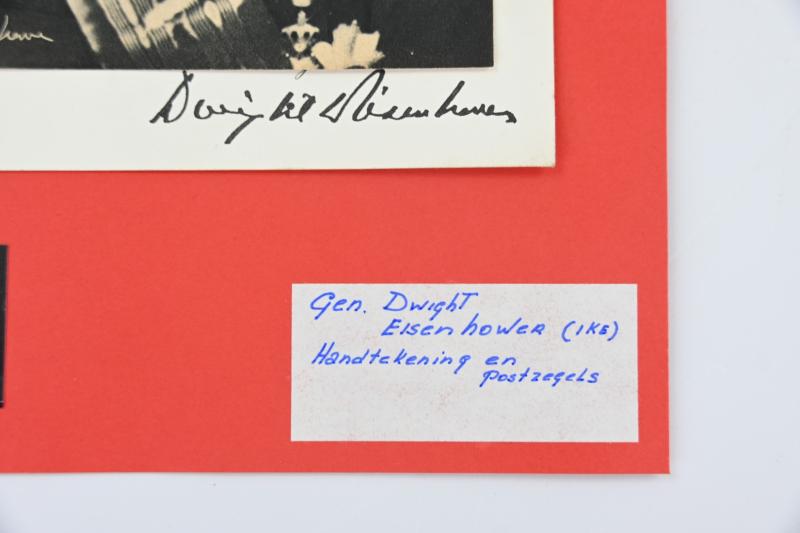 Dwight D Eisenhower
Gen. Dwight
Eisenhower (IKE)
Handtekening en
postzegels